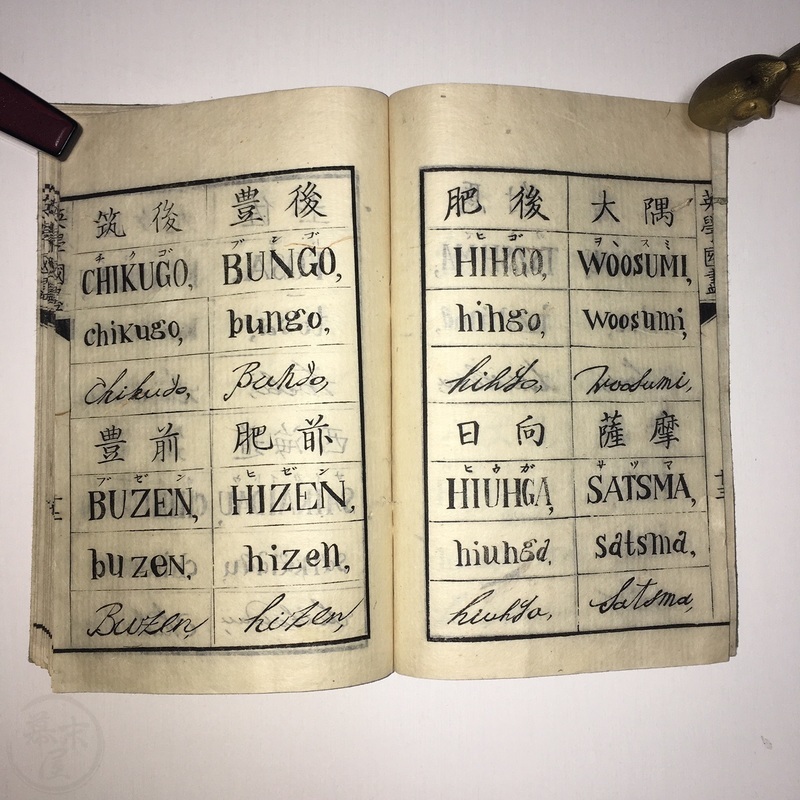 筑後 豊後
チクゴ ブンゴ
CHIKUGO, BUNGO,
chikugo, bungo,
Chikugo, Bungo,
豊前 肥前
ブゼン ヒゼン
BUZEN, HIZEN,
buzen, hizen,
Buzen, hizen,
肥後 大隅
ヒゴ ヲヽスミ
HIHGO, WOOSUMI,
hihgo, woosumi,
hihgo, woosumi,
日向 薩摩
ヒウガ サツマ
HIUHGA, SATSMA,
hiuhga, satsma,
hiuhga, satsma,
十三